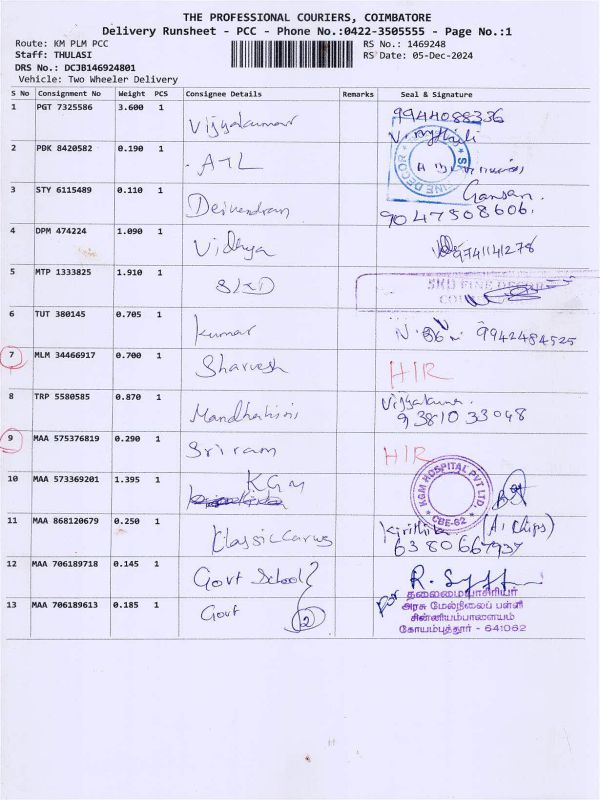 THE PROFESSIONAL COURIERS, COIMBATORE
Delivery Runsheet - PCC - Phone No.:0422-3505555 - Page No.:1
Route: KM PLM PCC
RS No.: 1469248
Staff: THULASI
RS Date: 05-Dec-2024
DRS No.: DCJB146924801
Vehicle: Two Wheeler Delivery
S No Consignment No Weight PCS Consignee Details Remarks Seal & Signature
1 PGT 7325586 3.600 1 Vijyakumar 9944088336
2 PDK 8420582 0.190 1 ATL
3 STY 6115489 0.110 1 Deivendran Gansan. 9047508606.
4 DPM 474224 1.090 1 Vidhya 9741141278
5 MTP 1333825 1.910 1 SKD SKD FINE DECOR
6 TUT 380145 0.705 1 Kumar 9942484525
7 MLM 34466917 0.700 1 Sharvesh HIR
8 TRP 5580585 0.870 1 Mandhahini Vijyakumar. 9381033048
9 MAA 575376819 0.290 1 Sriram HIR
10 MAA 573369201 1.395 1 KGM KGM HOSPITAL PVT LTD. CBE-62
11 MAA 868120679 0.250 1 Classic Carws Kirithika (A1 Chips) 6380667937
12 MAA 706189718 0.145 1 Govt School R.
13 MAA 706189613 0.185 1 Govt 2 for
தலைமையாசிரியர்
அரசு மேல்நிலைப் பள்ளி
சின்னியம்பாளையம்
கோயம்புத்தூர் - 641062